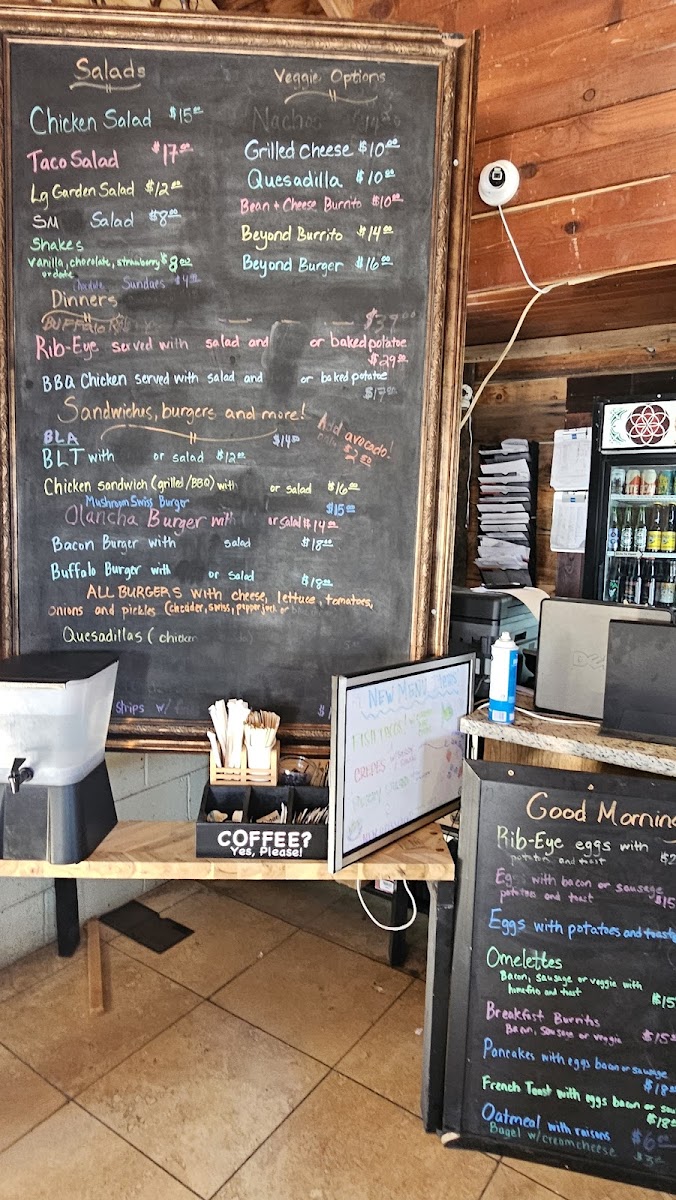 Salads
Chicken Salad $15.00
Taco Salad $17.00
Lg Garden Salad $12.00
SM Salad $8.00
Shakes
vanilla, chocolate, strawberry $8.00
or date
Chocolate Sundaes $4.00
Veggie Options
Nachos $14.00
Grilled Cheese $10.00
Quesadilla $10.00
Bean + Cheese Burrito $10.00
Beyond Burrito $14.00
Beyond Burger $16.00
Dinners
Buffalo $37.00
Rib-Eye served with salad and or baked potatoe
$29.00
BBQ Chicken served with salad and or baked potatoe
$17.00
Sandwichus, burgers and more!
Add avocado!
only $2.50
BLA $14.00
BLT with or salad $12.00
Chicken sandwich (grilled/BBQ) with or salad $16.00
Mushroom Swiss Burger $15.00
Olancha Burger with or salad $14.00
Bacon Burger with salad $18.00
Buffalo Burger with or salad $18.00
ALL BURGERS with cheese, lettuce, tomatoes,
onions and pickles (chedder, swiss, pepperjack or
Quesadillas (
Strips w/
COFFEE?
Yes, Please!
NEW MENU
FISH TACOS!
CREPES
DELL
Good Morning
Rib-Eye eggs with
potatoes and toast $2
Eggs with bacon or sausage
potatoes and toast $15
Eggs with potatoes and toast
Omelettes
Bacon, sausage or veggie with
homefries and toast $15
Breakfast Burritos
Bacon, sausage or veggie $15
Pancakes with eggs bacon or sausage
$18.00
French Toast with eggs bacon or sau
$18
Oatmeal with raisons $6.00
Bagel w/creamcheese $3